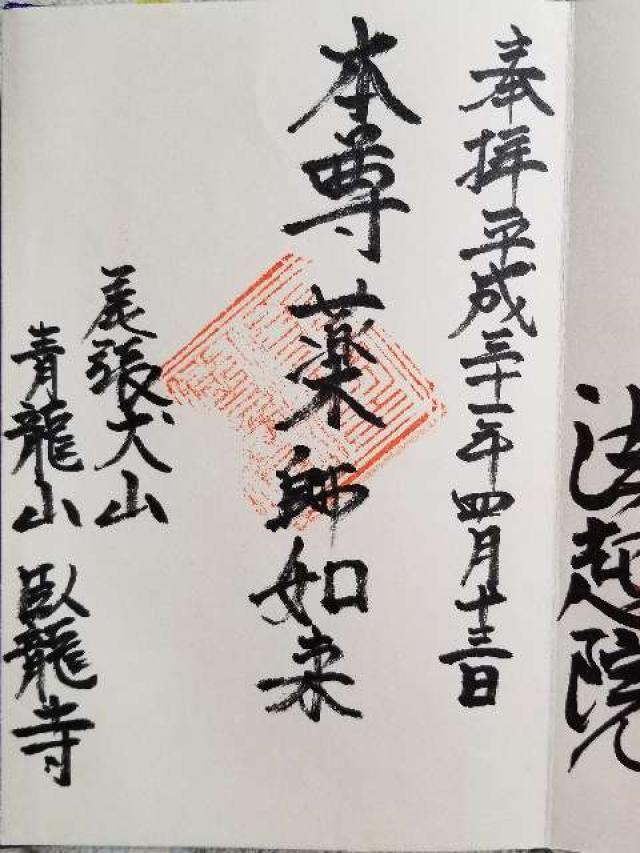 奉拝平成三十一年四月十三日
本尊薬師如来
尾張犬山
青龍山臥龍寺
法起院